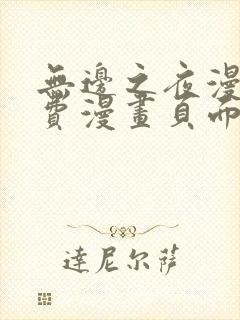 無邊之夜漫
費漫畫頁面
達尼尔萨